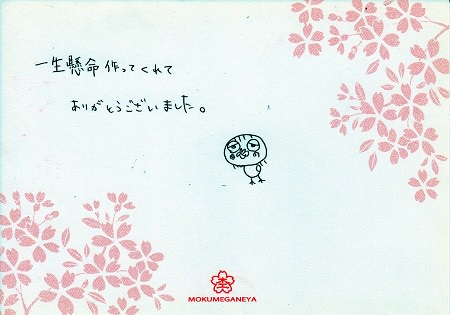 一生懸命作ってくれて
ありがとうございました。
MOKUMEGANEYA